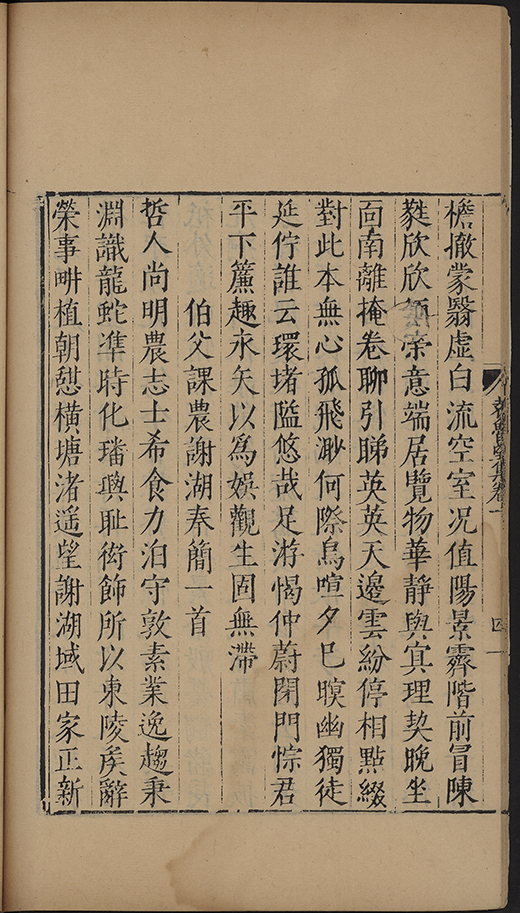 檐撤蒙翳虛白流空室况值陽景霽階前冒陳
蕤欣欣領宗意端居覽物華靜與寘理契晚坐
面南離掩卷聊引睇英英天邊雲紛停相點綴
對此本無心孤飛渺何際鳥喧夕巳暝幽獨徒
延佇誰云環堵隘悠哉足游愒仲蔚閉門悰君
平下簾趣永矢以爲娯觀生固無滯
伯父課農謝湖奉簡一首
哲人尚明農志士希食力泊守敦素業逸趨秉
淵識龍蛇凖時化璠璵耻衒飾所以東陵矦辭
榮事畊植朝憇橫塘渚遥望謝湖域田家正新
集卷一
四